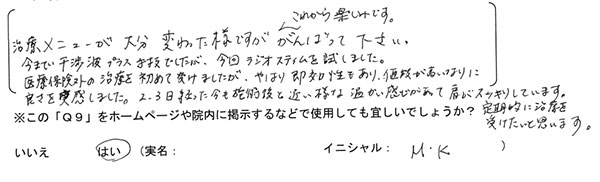 これから楽しみです。
治療メニューが 大分 変わった様ですが がんばって 下さい。
今まで干渉波プラス手技でしたが、今回ラジオスティムを試しました。
医療保険外の治療を初めて受けましたが、やはり即効性もあり、値段が高いなりに
良さを実感しました。2、3日経った今も施術後と近い様な温かい感じがあって肩がスッキリしています。
定期的に治療を
受けたいと思います。
※この「Q9」をホームページや院内に掲示するなどで使用しても宜しいでしょうか?
いいえ はい (実名: イニシャル: M・K )